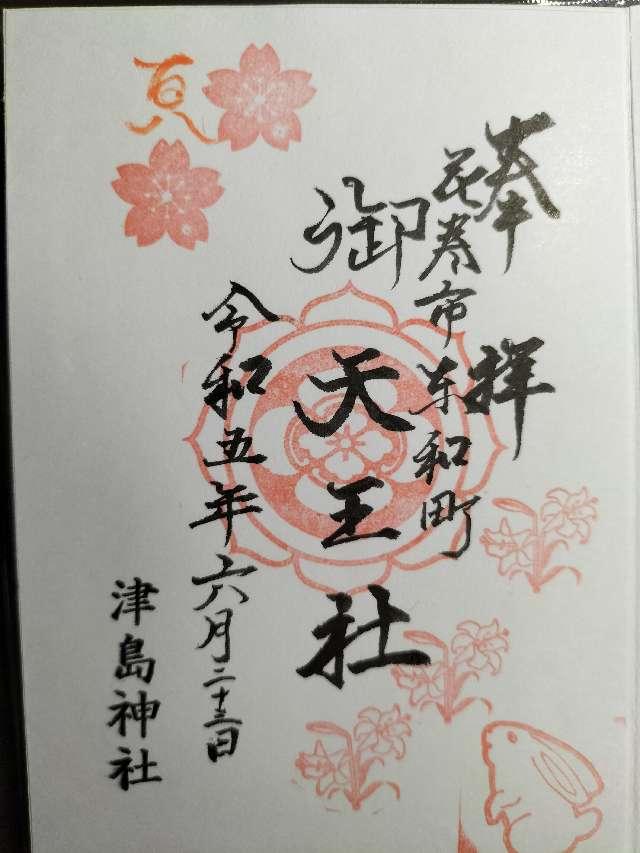 奉拝
花巻市东和町
御天王社
令和五年六月二十三日
津島神社